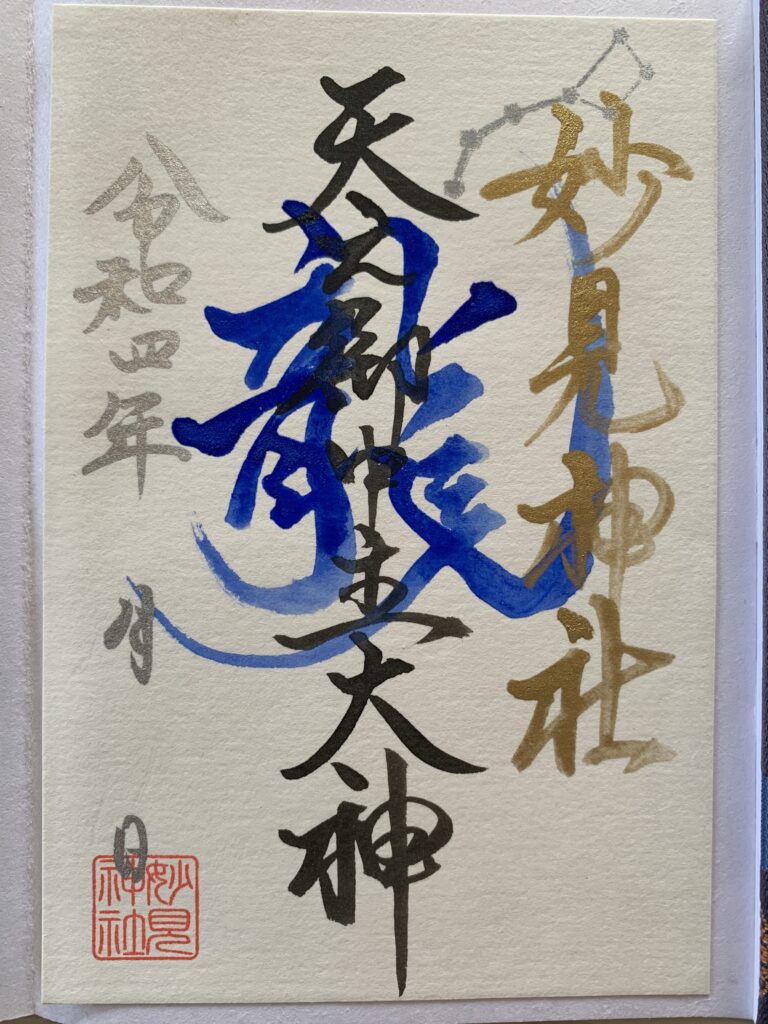 妙見神社
天之御中主大神
龍
令和四年 月 日
妙見神社